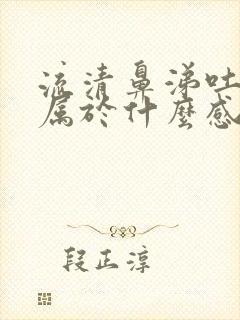 流清鼻涕吐
属於什麼感
段正淳